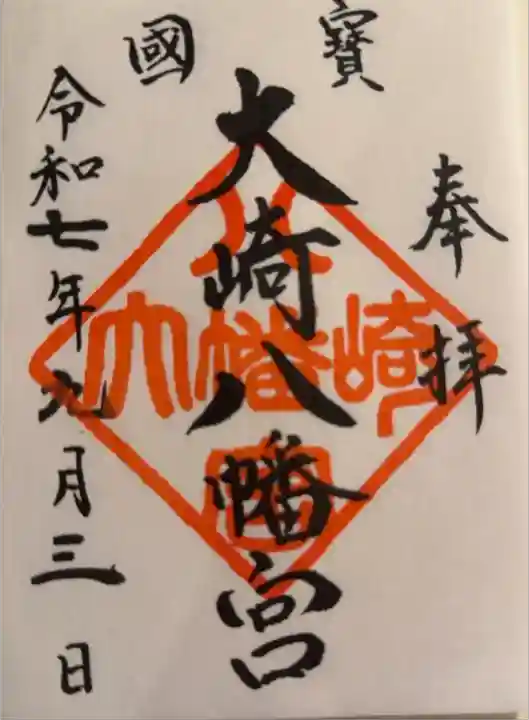 寶國
奉拝
大崎八幡宮
令和七年九月三日
大崎八幡宮